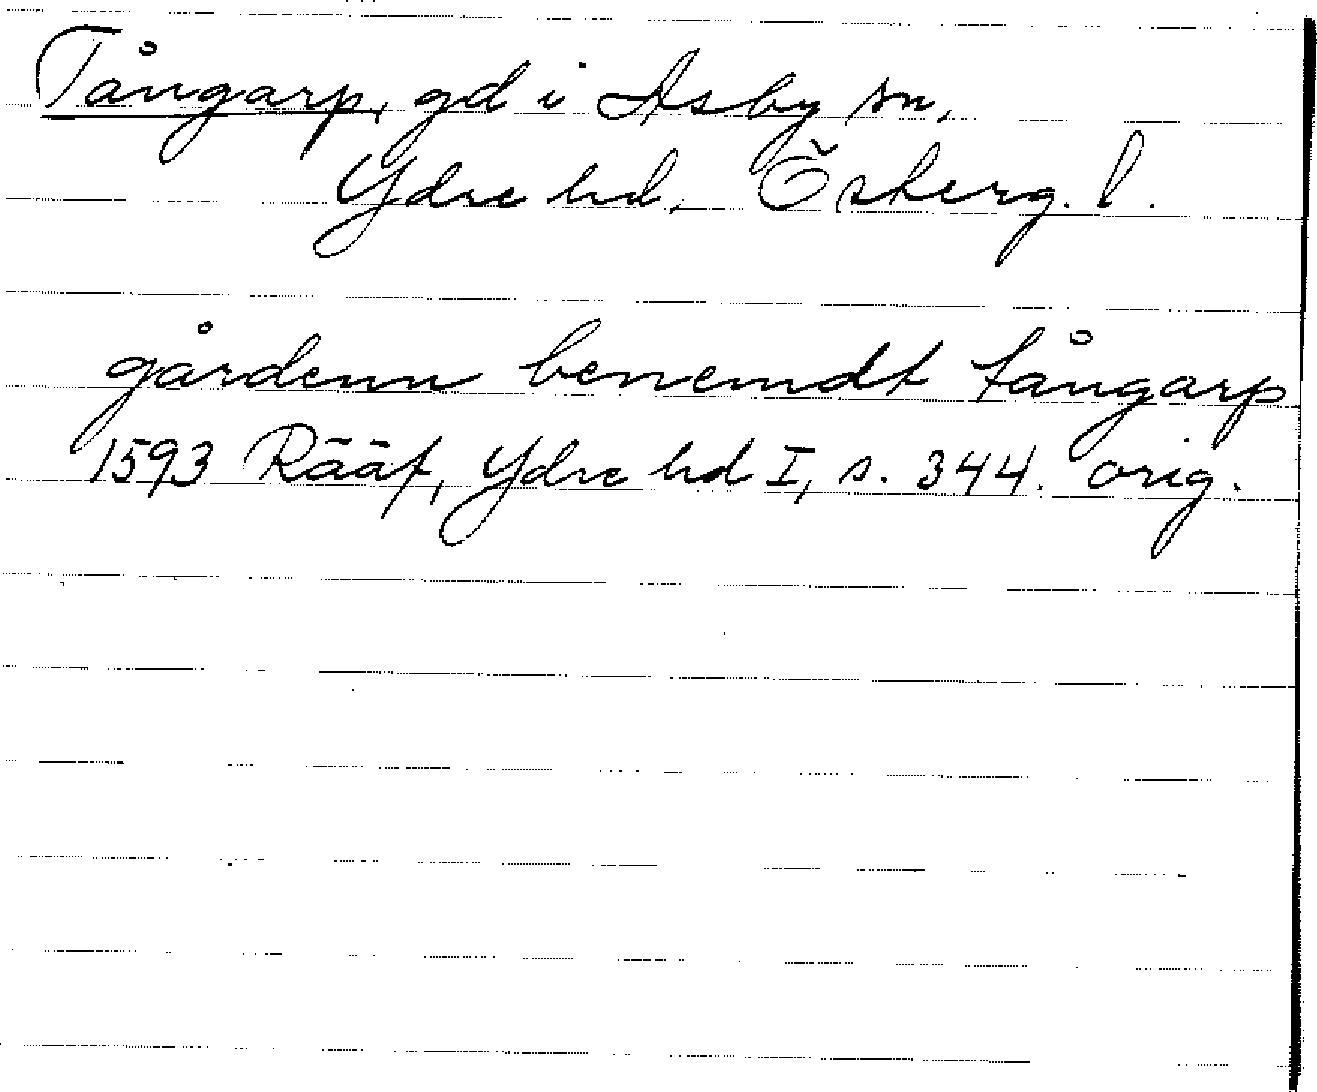 Tångarp, gd i Asby sn,
Ydre hd, Österg. l.
gårdenn benemdt tångarp
1593 Rääf, Ydre hd I, s. 344. orig.